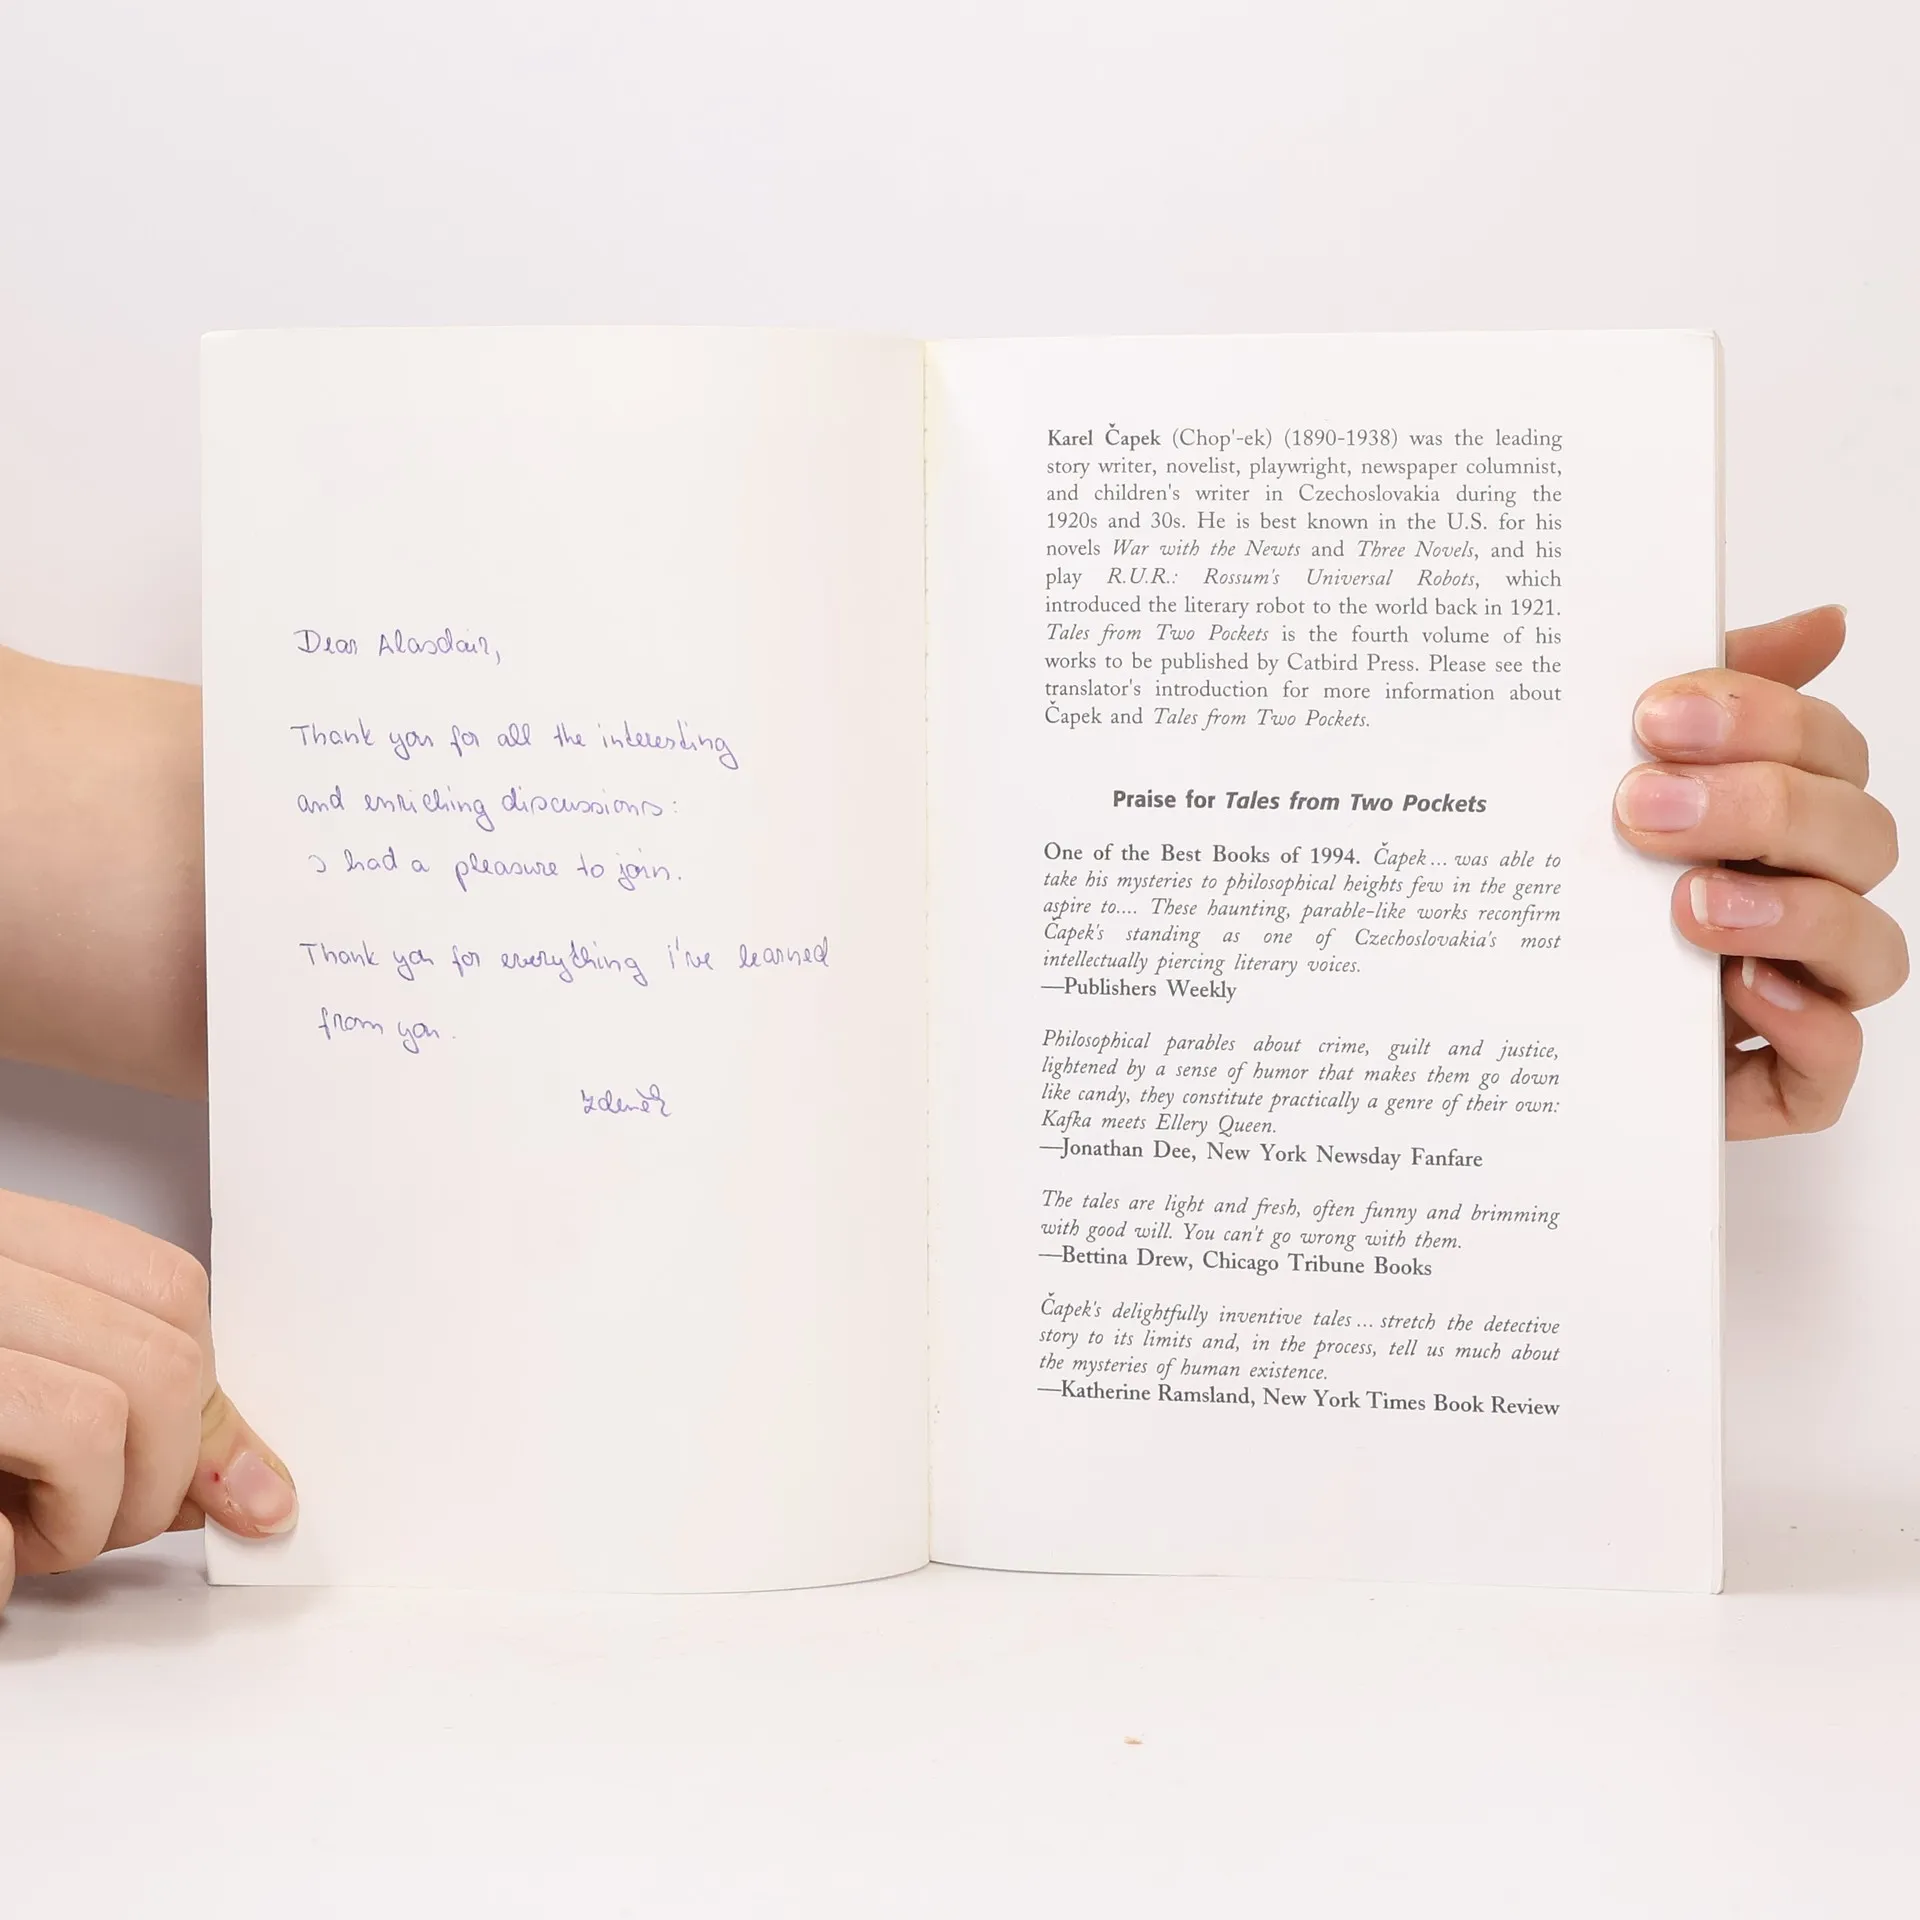 Dear Alasdair,
Thank you for all the interesting
and enriching discussions:
I had a pleasure to join.
Thank you for everything i've learned
from you.
Zdeněk
Karel Čapek (Chop'-ek) (1890-1938) was the leading
story writer, novelist, playwright, newspaper columnist,
and children's writer in Czechoslovakia during the
1920s and 30s. He is best known in the U.S. for his
novels War with the Newts and Three Novels, and his
play R.U.R.: Rossum's Universal Robots, which
introduced the literary robot to the world back in 1921.
Tales from Two Pockets is the fourth volume of his
works to be published by Catbird Press. Please see the
translator's introduction for more information about
Čapek and Tales from Two Pockets.
Praise for Tales from Two Pockets
One of the Best Books of 1994. Čapek... was able to
take his mysteries to philosophical heights few in the genre
aspire to.... These haunting, parable-like works reconfirm
Čapek's standing as one of Czechoslovakia's most
intellectually piercing literary voices.
—Publishers Weekly
Philosophical parables about crime, guilt and justice,
lightened by a sense of humor that makes them go down
like candy, they constitute practically a genre of their own:
Kafka meets Ellery Queen.
—Jonathan Dee, New York Newsday Fanfare
The tales are light and fresh, often funny and brimming
with good will. You can't go wrong with them.
—Bettina Drew, Chicago Tribune Books
Čapek's delightfully inventive tales... stretch the detective
story to its limits and, in the process, tell us much about
the mysteries of human existence.
—Katherine Ramsland, New York Times Book Review